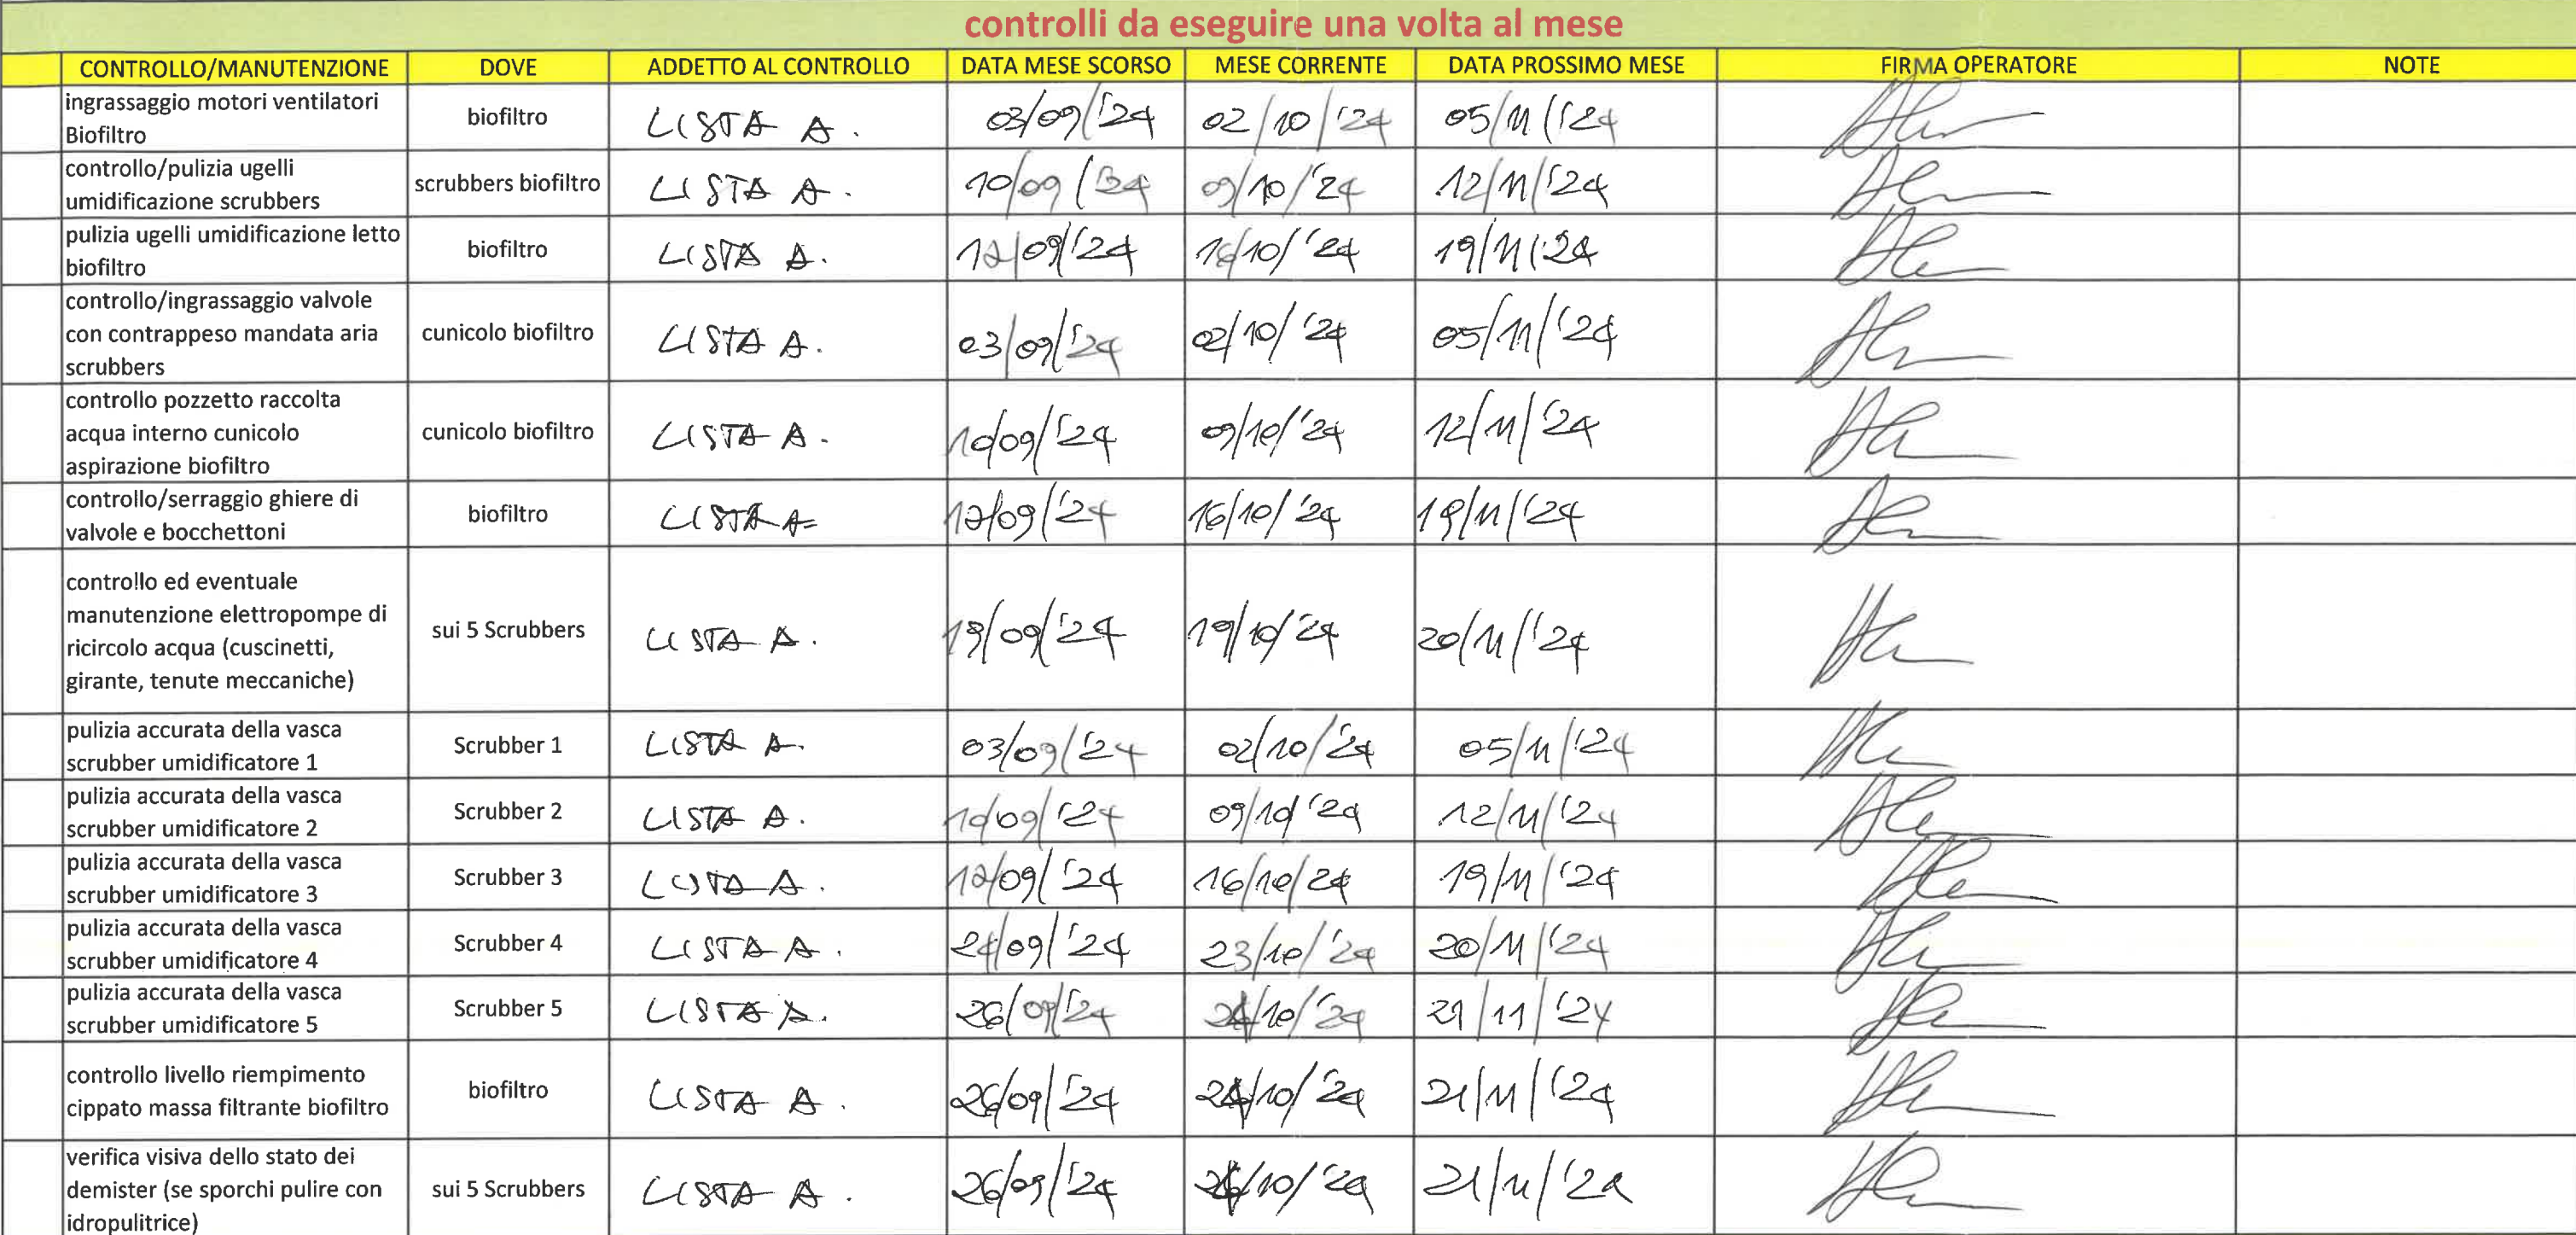 controlli da eseguire una volta al mese
CONTROLLO/MANUTENZIONE DOVE ADDETTO AL CONTROLLO DATA MESE SCORSO MESE CORRENTE DATA PROSSIMO MESE FIRMA OPERATORE NOTE
ingrassaggio motori ventilatori
Biofiltro
biofiltro LISTA A. 03/09/'24 02/10/'24 05/11/'24
controllo/pulizia ugelli
umidificazione scrubbers
scrubbers biofiltro LISTA A. 10/09/'24 09/10/'24 12/11/'24
pulizia ugelli umidificazione letto
biofiltro
biofiltro LISTA A. /09/'24 16/10/'24 19/11/'24
controllo/ingrassaggio valvole
con contrappeso mandata aria
scrubbers
cunicolo biofiltro LISTA A. 03/09/'24 02/10/'24 05/11/'24
controllo pozzetto raccolta
acqua interno cunicolo
aspirazione biofiltro
cunicolo biofiltro LISTA A. 10/09/'24 09/10/'24 12/11/'24
controllo/serraggio ghiere di
valvole e bocchettoni
biofiltro LISTA A /09/'24 16/10/'24 19/11/'24
controllo ed eventuale
manutenzione elettropompe di
ricircolo acqua (cuscinetti,
girante, tenute meccaniche)
sui 5 Scrubbers LISTA A. 19/09/'24 19/10/'24 20/11/'24
pulizia accurata della vasca
scrubber umidificatore 1
Scrubber 1 LISTA A. 03/09/'24 02/10/'24 05/11/'24
pulizia accurata della vasca
scrubber umidificatore 2
Scrubber 2 LISTA A. 10/09/'24 09/10/'24 12/11/'24
pulizia accurata della vasca
scrubber umidificatore 3
Scrubber 3 LISTA A. /09/'24 16/10/24 19/11/'24
pulizia accurata della vasca
scrubber umidificatore 4
Scrubber 4 LISTA A. 24/09/'24 23/10/'24 20/11/'24
pulizia accurata della vasca
scrubber umidificatore 5
Scrubber 5 LISTA A. 26/09/'24 24/10/'24 21/11/'24
controllo livello riempimento
cippato massa filtrante biofiltro
biofiltro LISTA A. 26/09/'24 24/10/'24 21/11/'24
verifica visiva dello stato dei
demister (se sporchi pulire con
idropulitrice)
sui 5 Scrubbers LISTA A. 26/09/'24 24/10/'24 21/11/'24